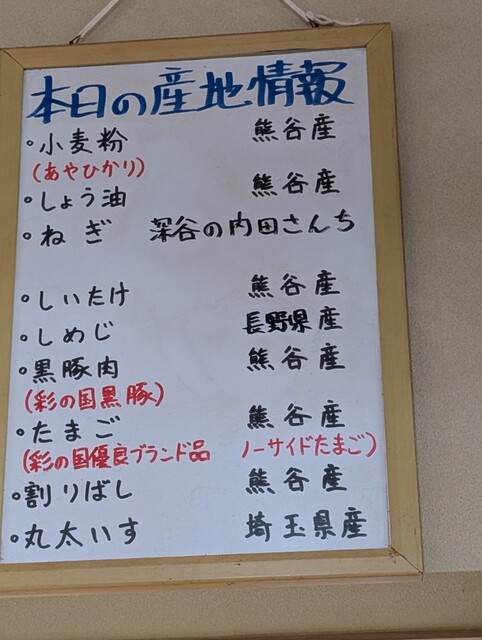 本日の産地情報
・小麦粉 熊谷産
(あやひかり)
・しょう油 熊谷産
・ねぎ 深谷の内田さんち
・しいたけ 熊谷産
・しめじ 長野県産
・黒豚肉 熊谷産
(彩の国黒豚)
・たまご 熊谷産
(彩の国優良ブランド品 ノーサイドたまご)
・割りばし 熊谷産
・丸太いす 埼玉県産